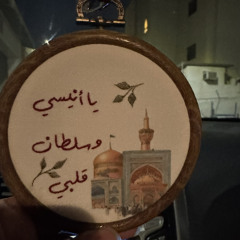 يا أنيسي
وسلطان
قلبي